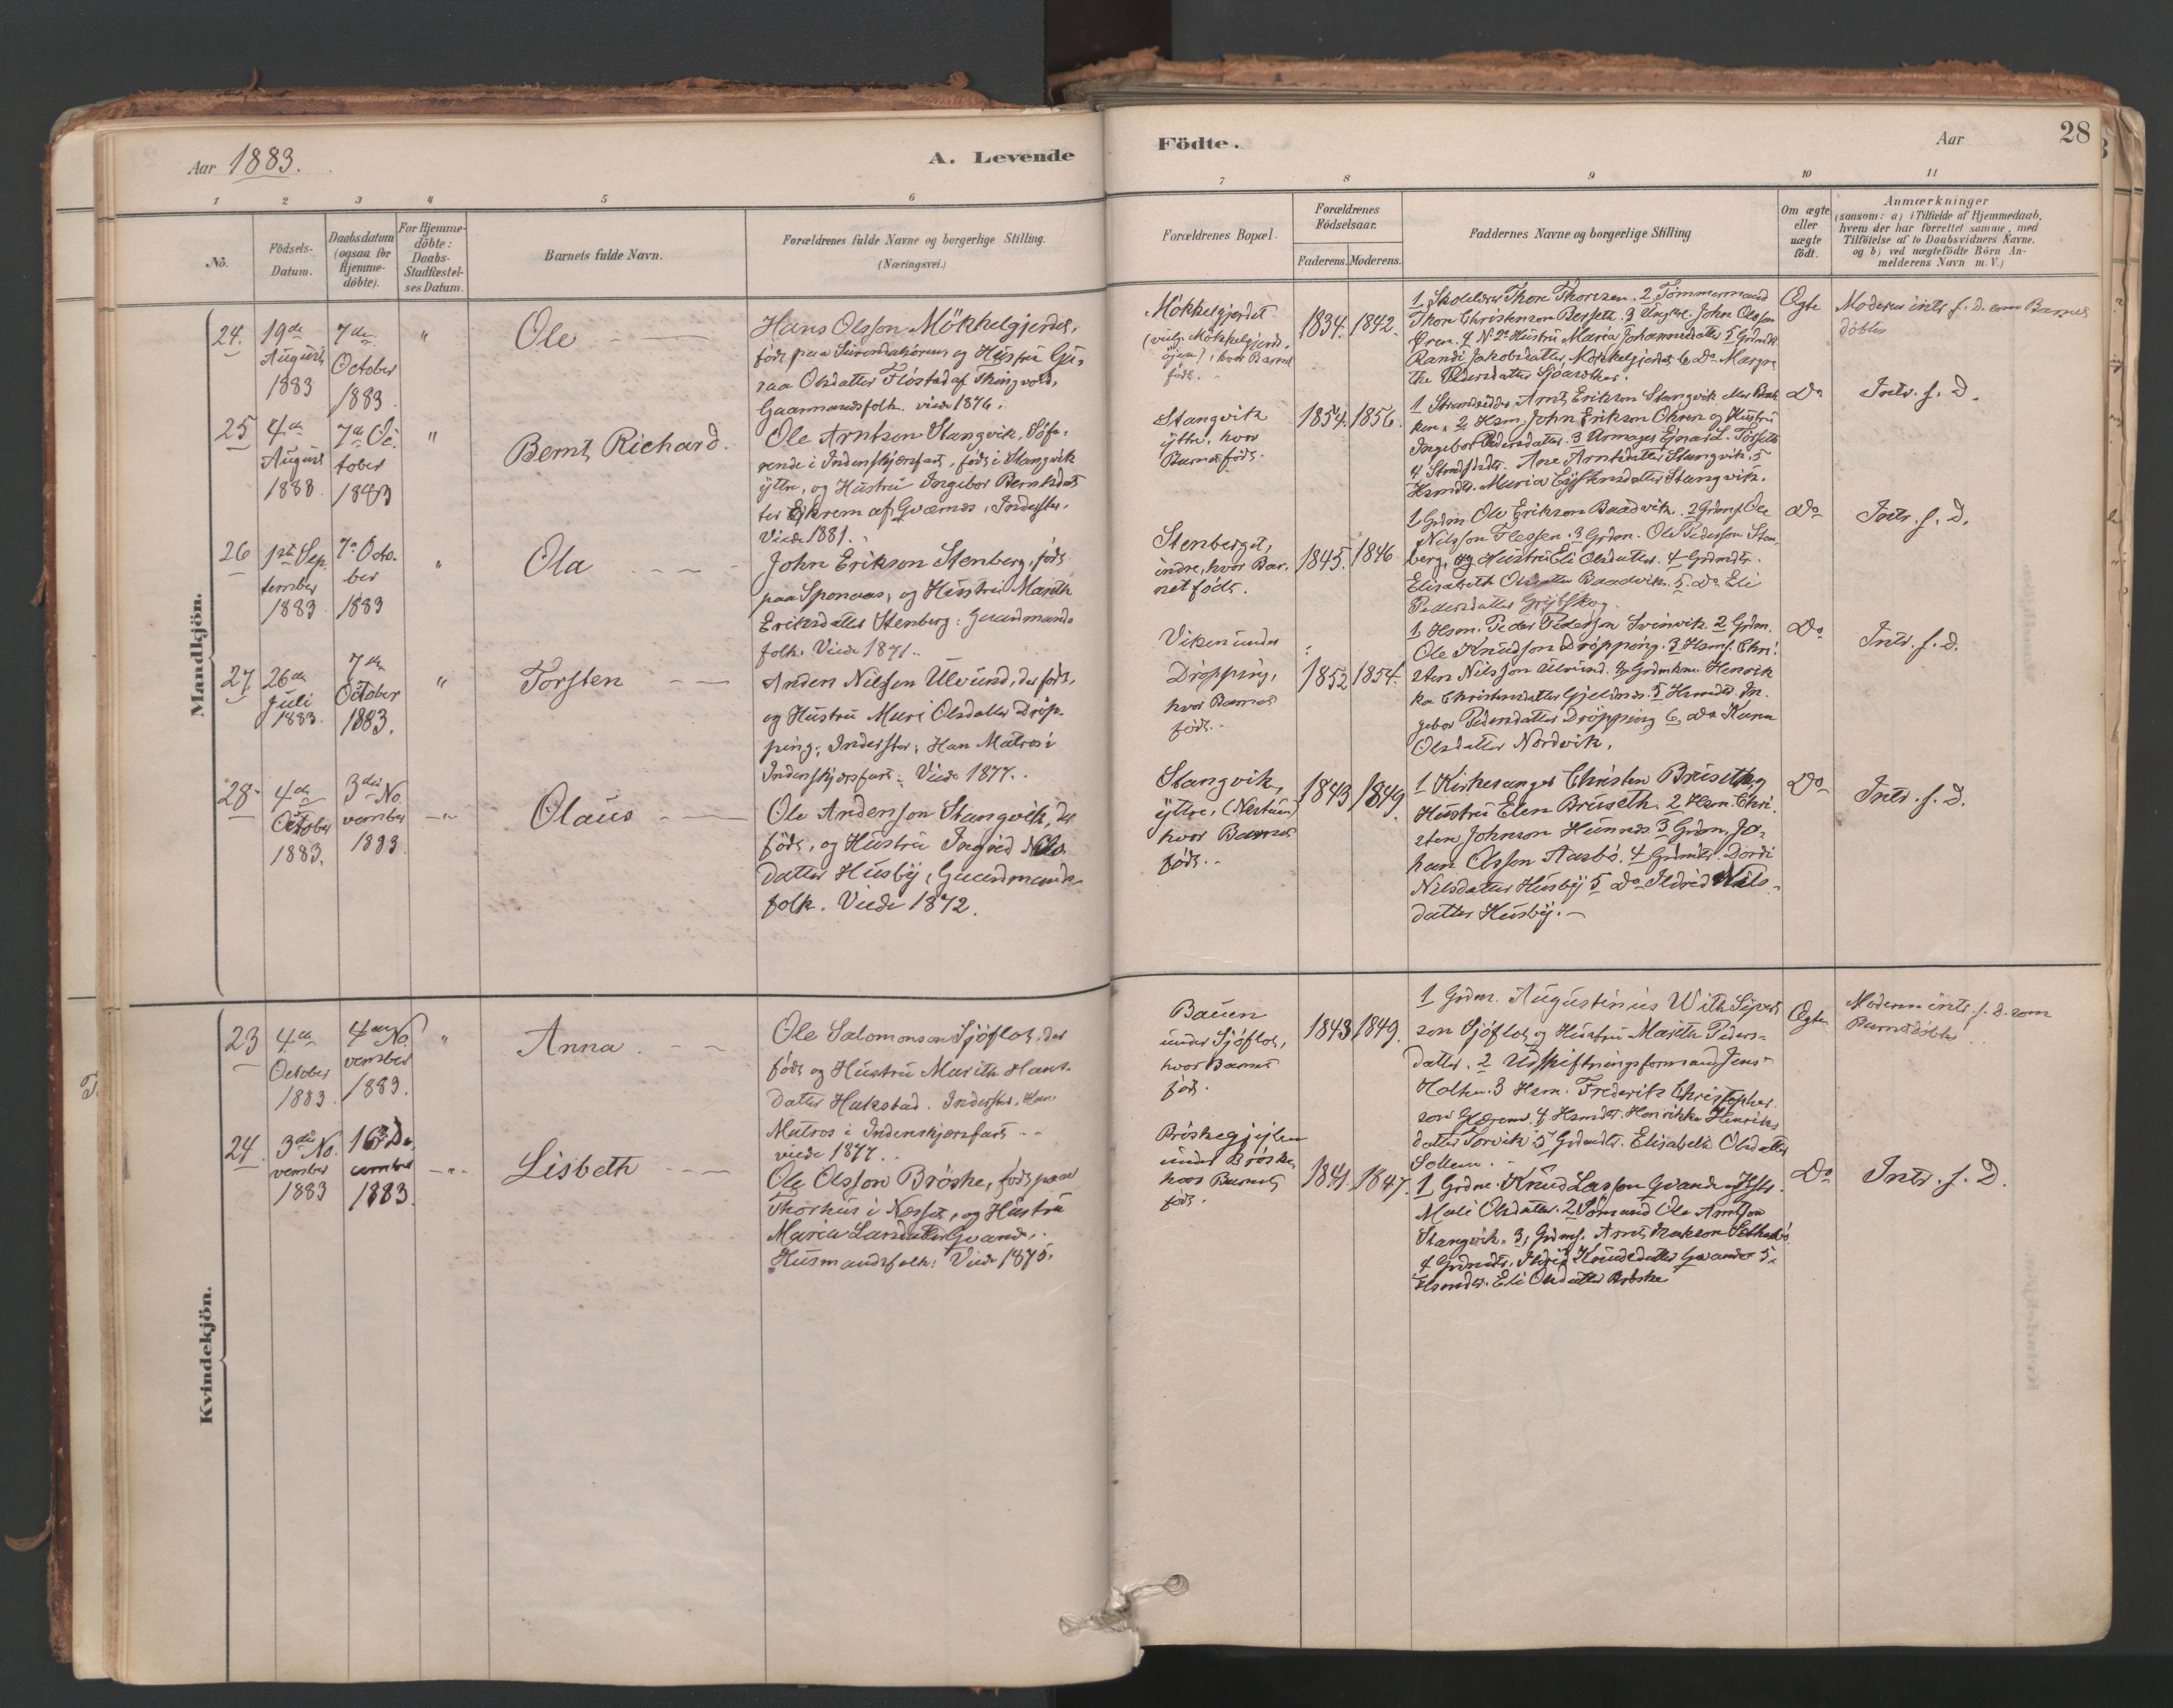 Aar 1883.
A. Levende
Födte.
Aar
28
1 2 3 4 5 6 7 8 9 10 11
No.
Födsels-
Datum.
Daabsdatum
(ogsaa for
Hjemme-
döbte).
For Hjemme-
döbte:
Daabs-
Stadfæstel-
ses Datum.
Barnets fulde Navn.
Forældrenes fulde Navne og borgerlige Stilling.
(Næringsvei.)
Forældrenes Bopæl.
Forældrenes
Födselsaar.
Faderens. Moderens.
Faddernes Navne og borgerlige Stilling
Om ægte
eller
uægte
födt.
Anmærkninger
(saasom: a) i Tilfælde af Hjemmedaab,
hvem der har forrettet samme, med
Tilföielse af to Daabsvidners Navne.
og b) ved uægtefödte Börn An-
melderens Navn m. V.)
Mandkjön.
24.
19de
August
1883
7de
October
1883.
"
Ole
Hans Olsson Mökkelgjerdet,
födt paa Surendalsören, og Hustru Gu-
Olsdatter Flöstad af Thingvold,
Gaarmandsfolk. viede 1876.
Mökkelgjerdet
hvor Barnet
födt.
1834. 1842.
1 Thore Thoresen. 2 Tömmermand
Thore Christenson Bersett. 3 John Olsson
Hustru Maria Johannesdatter 5 Grdmdtr
Randi Jakobsdatter Mökkelgjerdet 6 Do Margre-
the Pedersdatter
Ægte
Moderen intr. f. D. som Barnet
döbtes
25
4de
August
1883
7de Oc-
tober
1883
"
Bernt Richard.
Ole Arntson Stangvik, Söfa-
rende i Indenskjærsfart, födt i Stangvik
ytre, og Hustru Ingebor Berntsdat-
ter Ekrem af Qværnes, Inderster.
Viede 1881.
Stangvik
ytre, hvor
Barnet födt.
1854. 1856.
1 Strandsidder Arnt Erikson Stangvik
2 Hsm. John Erikson og Hustru
Ingebor Pedersdatter. 3
4 Ane Arntsdatter Stangvik. 5
Hsmdtr. Maria Eystensdatter Stangvik.
Do
Intr. f. D.
26
1ste Sep-
tember
1883
7de Octo-
ber
1883
"
Ola
John Erikson Stenberg, födt
paa Sponaas, og Hustru Marith
Eriksdatter Stenberg: Gaardmands-
folk. Viede 1871.
Stenberget,
indre, hvor Bar-
net födt.
1845. 1846
1 Grdm Ole Erikson Baadvik. 2 Grdms. Ole
Nilsson Flessen. 3 Grdm. Ole Pedersson Sten-
berg, og Hustru Eli Olsdatter. 4 Grdmdtr.
Elisabeth Olsdatter Baadvik. 5 Do Eli
Pedersdatter
Do
Intr. f. D.
27.
26de
Juli
1883.
7de
October
1883.
"
Torsten
Anders Nilsson Ulvund, der födt,
og Hustru Mari Olsdatter Dröp-
ping; Inderster; Han Matros i
Indenskjærsfart: Viede 1877.
Viken under
Dröpping,
hvor Barnet
födt.
1852 1854.
1 Hsm. Peder Pederson Svinvik 2 Grdm.
Ole Knudson Dröpping. 3 Hsms. Chri-
sten Nilsson Ulvund. 4 Grdmkone Henrik-
ka Christensdatter Gjeldnes. 5 Hsmdtr. In-
gebor Pedersdatter Dröpping 6 Do Karen
Olsdatter Nordvik.
Do
Intr. f. D.
28
4de
October
1883.
3die No-
vember
1883
"
Olaus
Ole Andersson Stangvik, der
födt, og Hustru Ingrid Nils-
datter Husby, Gaardmands-
folk. Viede 1872.
Stangvik,
ytre, (Nestun)
hvor Barnet
födt.
1843 1849.
1 Kirkesanger Christen Bruseth og
Hustru Elen Bruseth. 2 Hsm. Chri-
sten Johnson Hunnes. 3 Grdm. Jo-
han Olsson Aasbö. 4 Grdmdtr. Dordi
Nilsdatter Husby 5 Do Ildrid Nils-
datter Husby.
Do
Intr. f. D.
Kvindekjön.
23
4de
October
1883.
4de No-
vember
1883.
"
Anna
Ole Salomonson Sjöflot, der
födt og Hustru Marith Hans-
datter Hakstad. Inderster, Han
Matros i Indenskjærsfart
viede 1877.
Bauen
under Sjöflot,
hvor Barnet
födt.
1843 1849.
1 Grdm. Augustinius With Syverts-
son Sjöflot, og Hustru Marith Peders-
datter. 2 Udskiftningsformand Jens
Holten. 3 Hsm. Frederik Christopher-
son Glærem. 4 Hsmdtr. Henrikka Henriks-
datter Torvik. 5 Grdmdtr. Elisabeth Olsdatter
Sollem.
Ægte
Moderen intr. f. D. som
Barnet döbtes
24.
3die No-
vember
1883
16de De-
cember
1883.
"
Lisbeth
Ole Olsson Bröske, födt paa
Thorhus i Nesset, og Hustru
Maria Larsdatter Qvande,
Husmandsfolk: Viede 1875.
Bröskegjejlen
under Bröske,
hvor Barnet
födt.
1841. 1847.
1 Grdm. Knud Larsson Qvande og Hstr.
Mali Olsdatter. 2 Sömand Ole Arntson
Stangvik. 3, Grdms. Arnt Isakson
4 Grdmdtr. Ildrid Knudsdatter Qvande 5
Hsmdtr. Eli Olsdatter Bröske
Do
Intr. f. D.